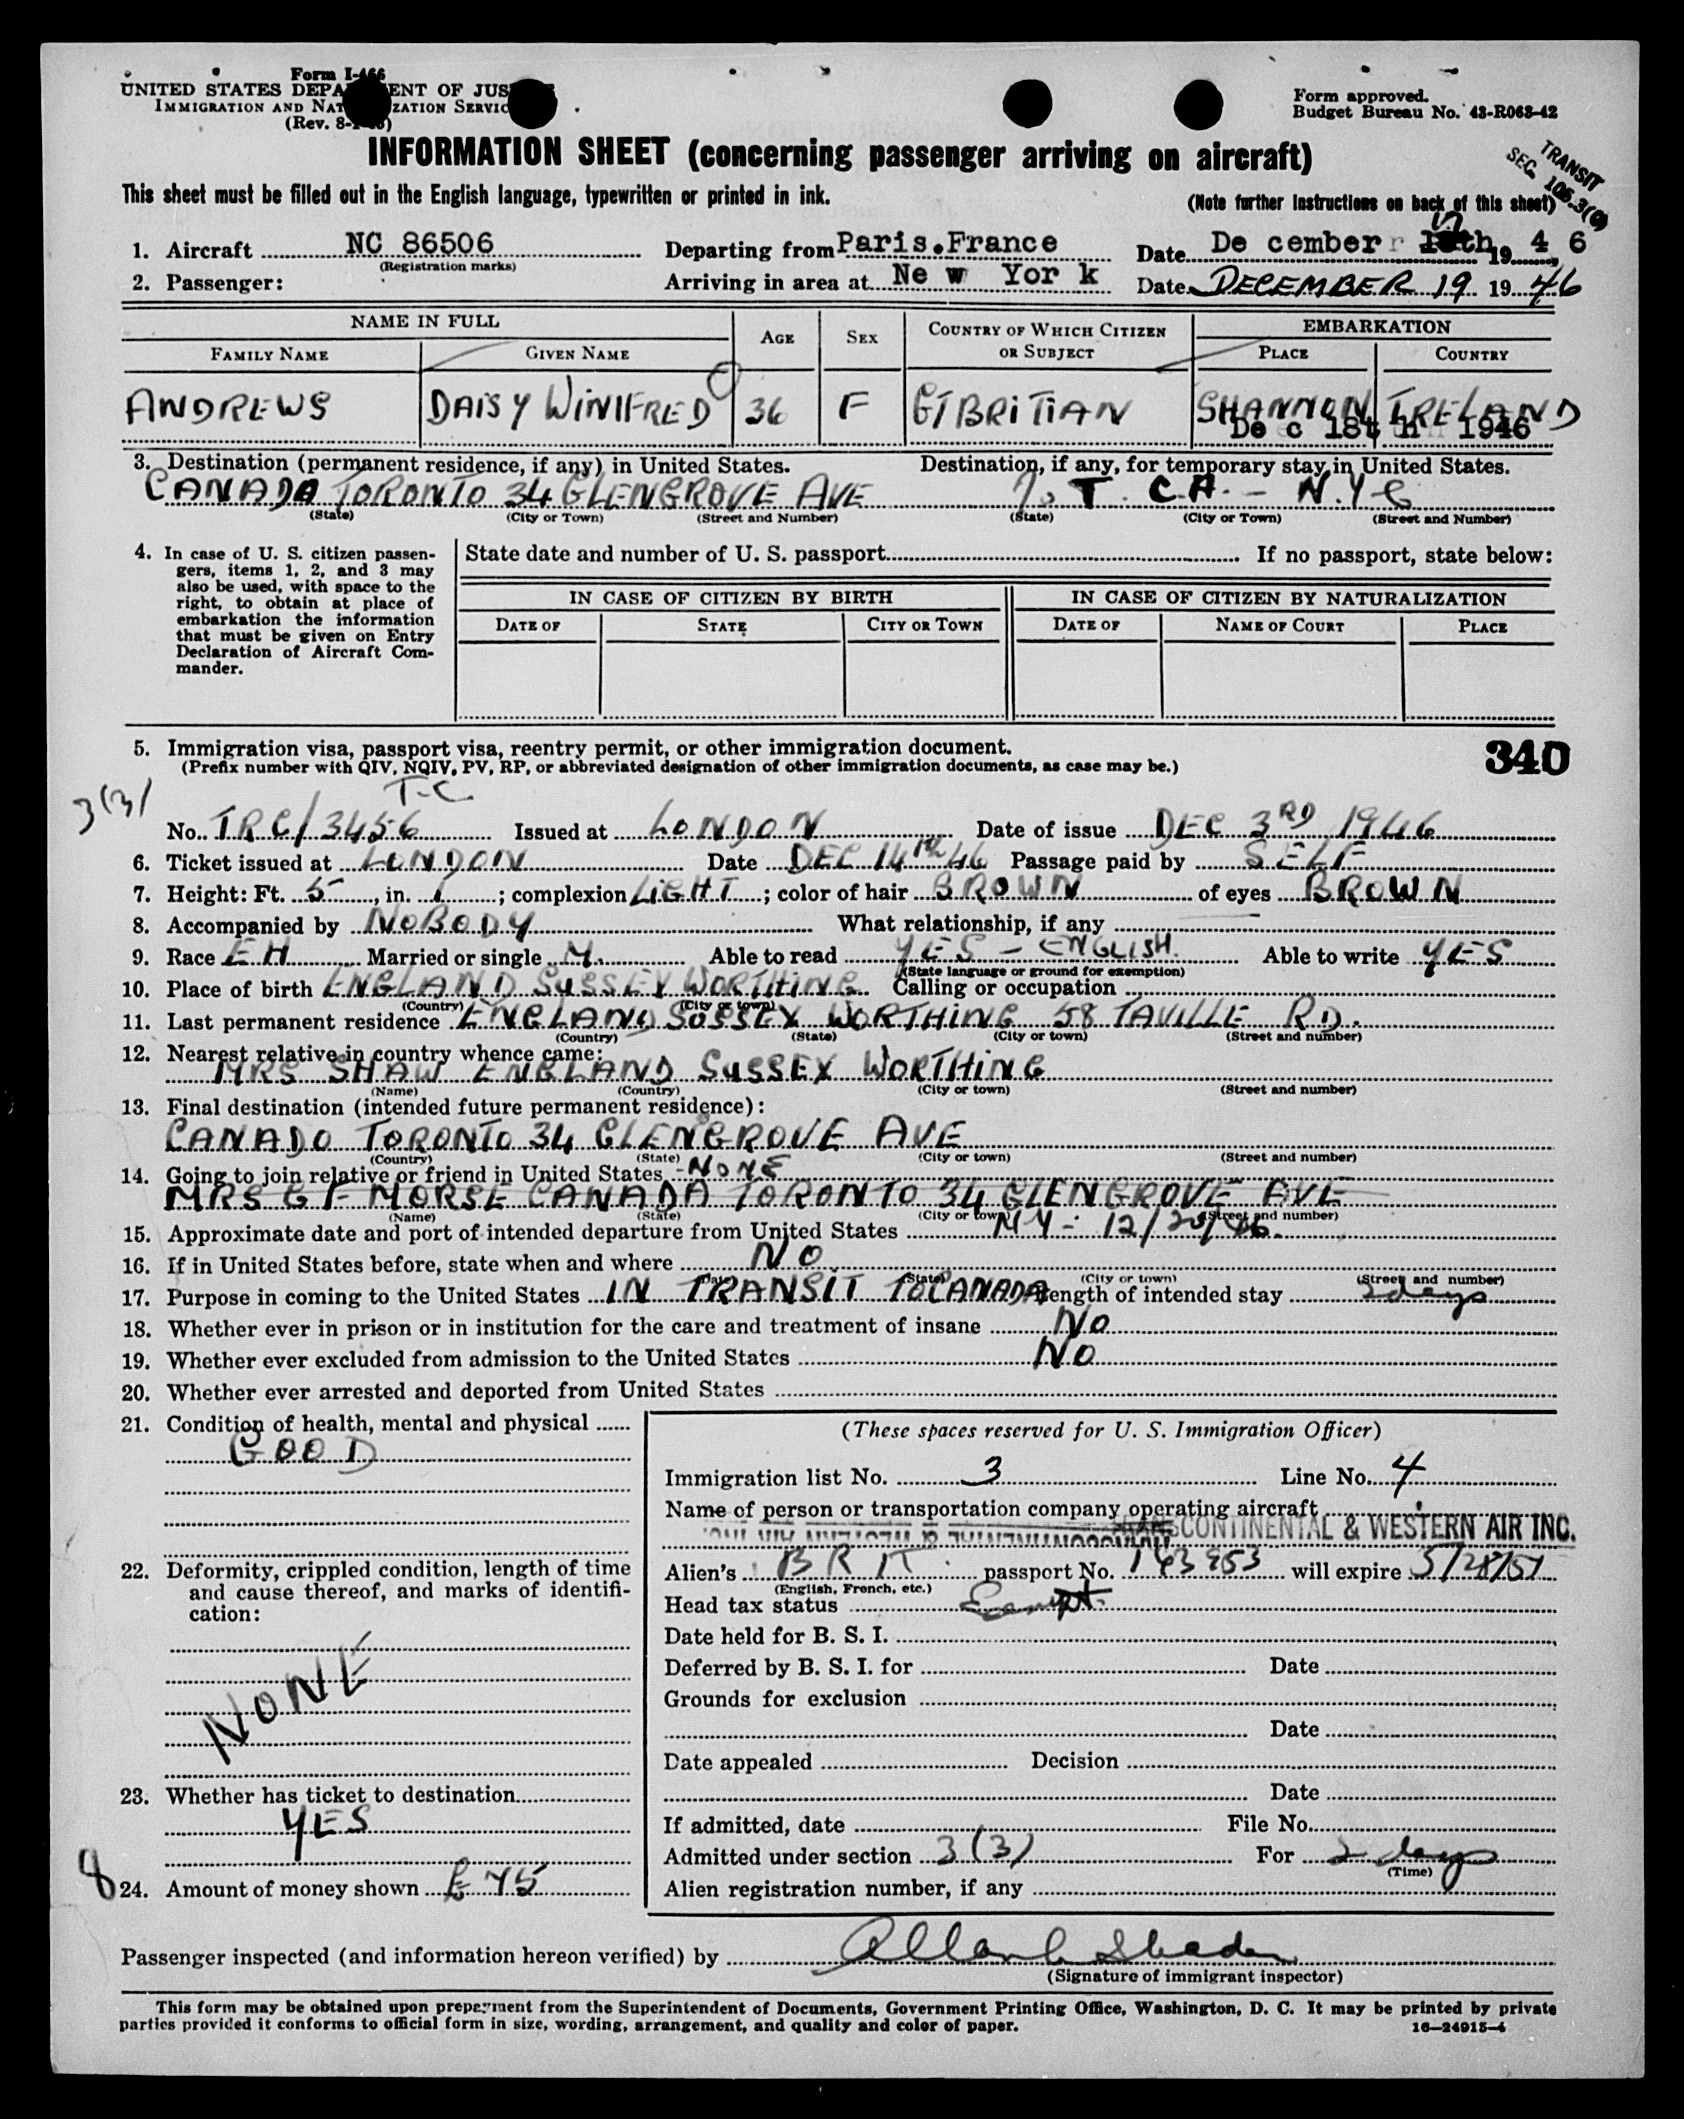 Form I-466
UNITED STATES DEPARTMENT OF JUSTICE
IMMIGRATION AND NATURALIZATION SERVICE
(Rev. 8-
Form approved.
Budget Bureau No. 43-R063-42
INFORMATION SHEET (concerning passenger arriving on aircraft)
TRANSIT
SEC. 106.3(
This sheet must be filled out in the English language, typewritten or printed in ink.
(Note further instructions on back of this sheet)
1. Aircraft NC 86506 Departing from Paris.France Date De cember 19 4 6
(Registration marks)
2. Passenger: Arriving in area at Ne w Yor k Date DECEMBER 19 19 46
NAME IN FULL AGE SEX COUNTRY OF WHICH CITIZEN OR SUBJECT EMBARKATION
FAMILY NAME GIVEN NAME PLACE COUNTRY
ANDREWS DAISY WINIFRED 36 F GTBRITIAN SHANNON IRELAND
De c 18t h 1946
3. Destination (permanent residence, if any) in United States. Destination, if any, for temporary stay in United States.
CANADA TORONTO 34 GLENGROVE AVE T. C.A. - N.Y C
(State) (City or Town) (Street and Number) (State) (City or Town) (Street and Number)
4. In case of U. S. citizen passen-
gers, items 1, 2, and 3 may
also be used, with space to the
right, to obtain at place of
embarkation the information
that must be given on Entry
Declaration of Aircraft Com-
mander.
State date and number of U. S. passport If no passport, state below:
IN CASE OF CITIZEN BY BIRTH IN CASE OF CITIZEN BY NATURALIZATION
DATE OF STATE CITY OR TOWN DATE OF NAME OF COURT PLACE
5. Immigration visa, passport visa, reentry permit, or other immigration document. 340
(Prefix number with QIV, NQIV, PV, RP, or abbreviated designation of other immigration documents, as case may be.)
3(3)
T-C
No. TRC/3456 Issued at LONDON Date of issue DEC 3RD 1946
6. Ticket issued at LONDON Date DEC 14TH 46 Passage paid by SELF
7. Height: Ft. 5, in. 1; complexion LIGHT; color of hair BROWN of eyes BROWN
8. Accompanied by NOBODY What relationship, if any
9. Race EH Married or single M. Able to read YES - ENGLISH. Able to write YES
(State language or ground for exemption)
10. Place of birth ENGLAND SUSSEX WORTHING Calling or occupation
(Country) (City or town)
11. Last permanent residence ENGLAND SUSSEX WORTHING 58 TAVILLE RD.
(Country) (State) (City or town) (Street and number)
12. Nearest relative in country whence came:
MRS SHAW ENGLAND SUSSEX WORTHING
(Name) (Country) (City or town) (Street and number)
13. Final destination (intended future permanent residence):
CANADO TORONTO 34 GLENGROVE AVE
(Country) (State) (City or town) (Street and number)
14. Going to join relative or friend in United States - NONE
MRS G F MORSE CANADA TORONTO 34 GLENGROVE AVE
(Name) (State) (City or town) (Street and number)
15. Approximate date and port of intended departure from United States NY - 12/20/46.
16. If in United States before, state when and where NO
(Date) (State) (City or town) (Street and number)
17. Purpose in coming to the United States IN TRANSIT TO CANADA Length of intended stay 2 days
18. Whether ever in prison or in institution for the care and treatment of insane NO
19. Whether ever excluded from admission to the United States NO
20. Whether ever arrested and deported from United States
21. Condition of health, mental and physical
GOOD
(These spaces reserved for U. S. Immigration Officer)
Immigration list No. 3 Line No. 4
Name of person or transportation company operating aircraft
TRANSCONTINENTAL & WESTERN AIR INC.
22. Deformity, crippled condition, length of time
and cause thereof, and marks of identifi-
cation:
NONE
Alien's BRIT. passport No. 143953 will expire 5/28/51
(English, French, etc.)
Head tax status Exempt
Date held for B. S. I.
Deferred by B. S. I. for Date
Grounds for exclusion
Date
Date appealed Decision
23. Whether has ticket to destination
YES
Date
If admitted, date File No.
Admitted under section 3(3) For 2 days
(Time)
8
24. Amount of money shown £ 75
Alien registration number, if any
Passenger inspected (and information hereon verified) by
(Signature of immigrant inspector)
This form may be obtained upon prepayment from the Superintendent of Documents, Government Printing Office, Washington, D. C. It may be printed by private
parties provided it conforms to official form in size, wording, arrangement, and quality and color of paper.
16—24915-4